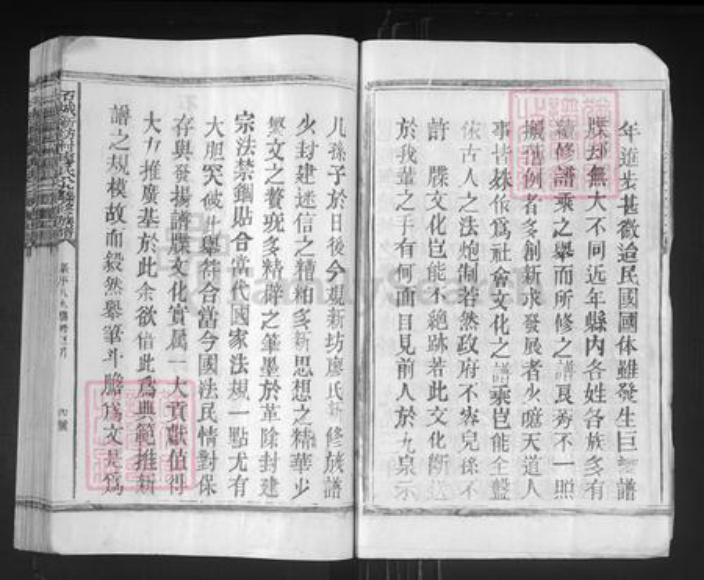 年進步甚微迨民國國体雖發生巨 譜
牒却無大不同近年縣内各姓各族多有
續修譜乘之舉而所修之譜良莠不一照
搬舊例者多創新求發展者少噫天道人
事皆 依為社會文化之譜乘豈能全盤
依古人之法炮制若然政府不容兒孫不
許 牒文化豈能不絶跡若此文化斷送
於我輩之手有何面目見前人於九泉示
儿孫子於日後今觀新坊廖氏新修族譜
少封建迷信之糟粕多新思想之精華少
繁文之贅 多精辟之筆墨於革除封建
宗法禁錮貼合當代國家法規一點尤有
大胆突破此舉符合當今國法民情對保
存與發揚譜牒文化實属一大貢獻值得
大力推廣基於此余欲借此為典範推新
譜之規模故而毅然舉筆斗膽為文是為
石城新坊村廖氏 修族譜
FamilySearch